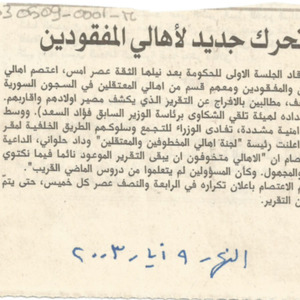 030509-0001-H
تحرك جديد لأهالي المفقودين
قاد الجلسة الاولى للحكومة بعد نيلها الثقة عصر امس، اعتصم اهالي
والمفقودين ومعهم قسم من اهالي المعتقلين في السجون السورية
ف، مطالبين بالافراج عن التقرير الذي يكشف مصير اولادهم واقاربهم.
داده لهيئة تلقي الشكاوى برئاسة الوزير السابق فؤاد السعد). ووسط
منية مشددة، تفادى الوزراء للتجمع وسلوكهم الطريق الخلفية لمقر
اعلنت رئيسة "لجنة اهالي المخطوفين والمعتقلين" وداد حلواني، الداعية
تصام ان "الاهالي متخوفون ان يبقى التقرير الموعود نائما فيما نكتوي
والمجهول. وكأن المسؤولين لم يتعلموا من دروس الماضي القريب".
الاعتصام باعلان تكراره في الرابعة والنصف عصر كل خميس، حتى يتم
ن التقرير.
النهار ٩ أيار ٢٠٠٣